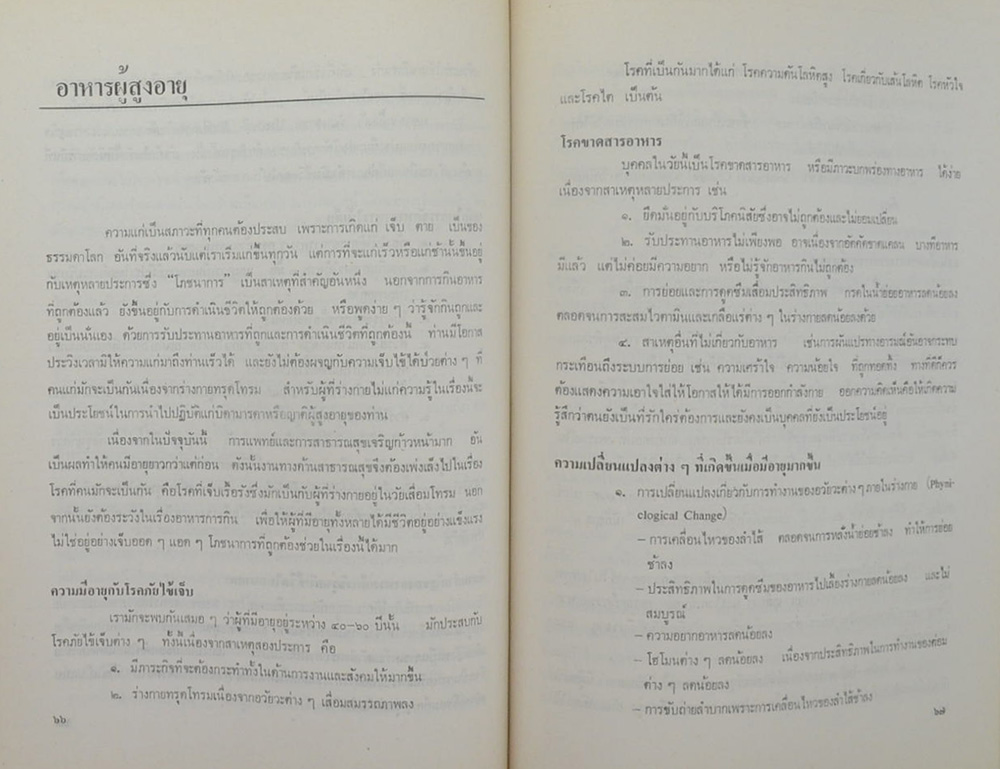 อาหารผู้สูงอายุ
ความแก่เป็นสภาวะที่ทุกคนต้องประสบ เพราะการเกิดแก่ เจ็บ ตาย เป็นของ
ธรรมดาโลก อันที่จริงแล้วนับแต่เราเริ่มแก่ขึ้นทุกวัน แต่การที่จะแก่เร็วหรือแก่ช้านั้นขึ้นอยู่
กับเหตุหลายประการซึ่ง "โภชนาการ" เป็นสาเหตุที่สำคัญอันหนึ่ง นอกจากการกินอาหาร
ที่ถูกต้องแล้ว ยังขึ้นอยู่กับการดำเนินชีวิตให้ถูกต้องด้วย หรือพูดง่าย ๆ ว่ารู้จักกินถูกและ
อยู่เป็นนั่นเอง ด้วยการรับประทานอาหารที่ถูกและการดำเนินชีวิตที่ถูกต้องนี้ ท่านมีโอกาส
ประวิงเวลามิให้ความแก่มาถึงท่านเร็วได้ และยังไม่ต้องผจญกับความเจ็บไข้ได้ป่วยต่าง ๆ ที่
คนแก่มักจะเป็นกันเนื่องจากร่างกายทรุดโทรม สำหรับผู้ที่ร่างกายไม่แก่ความรู้ในเรื่องนี้จะ
เป็นประโยชน์ในการนำไปปฏิบัติแก่บิดามารดาหรือญาติผู้สูงอายุของท่าน
เนื่องจากในปัจจุบันนี้ การแพทย์และการสาธารณสุขเจริญก้าวหน้ามาก อัน
เป็นผลทำให้คนมีอายุยาวกว่าแต่ก่อน ดังนั้นงานทางด้านสาธารณสุขจึงต้องเพ่งเล็งไปในเรื่อง
โรคที่คนมักจะเป็นกัน คือโรคที่เจ็บเรื้อรังซึ่งมักเป็นกับผู้ที่ร่างกายอยู่ในวัยเสื่อมโทรม นอก
จากนั้นยังต้องระวังในเรื่องอาหารการกิน เพื่อให้ผู้ที่มีอายุทั้งหลายได้มีชีวิตอยู่อย่างแข็งแรง
ไม่ใช่อยู่อย่างเจ็บออด ๆ แอด ๆ โภชนาการที่ถูกต้องช่วยในเรื่องนี้ได้มาก
ความมีอายุกับโรคภัยไข้เจ็บ
เรามักจะพบกันเสมอ ๆ ว่าผู้ที่มีอายุอยู่ระหว่าง ๔๐–๖๐ ปีนั้น มักประสบกับ
โรคภัยไข้เจ็บต่าง ๆ ทั้งนี้เนื่องจากสาเหตุสองประการ คือ
๑. มีภาระกิจที่จะต้องกระทำทั้งในด้านการงานและสังคมให้มากขึ้น
๒. ร่างกายทรุดโทรมเนื่องจากอวัยวะต่าง ๆ เสื่อมสมรรถภาพลง
๖๖
โรคที่เป็นกันมากได้แก่ โรคความดันโลหิตสูง โรคเกี่ยวกับเส้นโลหิต โรคหัวใจ
และโรคไต เป็นต้น
โรคขาดสารอาหาร
บุคคลในวัยนี้เป็นโรคขาดสารอาหาร หรือมีภาวะบกพร่องทางอาหาร ได้ง่าย
เนื่องจากสาเหตุหลายประการ เช่น
๑. ยึดมั่นอยู่กับบริโภคนิสัยซึ่งอาจไม่ถูกต้องและไม่ยอมเปลี่ยน
๒. รับประทานอาหารไม่เพียงพอ อาจเนื่องจากอัตคัดขาดแคลน บางทีอาหาร
มีแล้ว แต่ไม่ค่อยมีความอยาก หรือไม่รู้จักอาหารกินไม่ถูกต้อง
๓. การย่อยและการดูดซึมเสื่อมประสิทธิภาพ กรดในน้ำย่อยอาหารลดน้อยลง
ตลอดจนการสะสมไวตามินและเกลือแร่ต่าง ๆ ในร่างกายลดน้อยลงด้วย
๔. สาเหตุอื่นที่ไม่เกี่ยวกับอาหาร เช่นการผันแปรทางอารมณ์อันอาจกระทบ
กระเทือนถึงระบบการย่อย เช่น ความเศร้าใจ ความน้อยใจ ที่ถูกทอดทิ้ง ทางที่ดีก็ควร
ต้องแสดงความเอาใจใส่ให้โอกาสให้ได้มีการออกกำลังกาย ออกความคิดเห็นคือให้เกิดความ
รู้สึกว่าตนยังเป็นที่รักใคร่ต้องการและยังคงเป็นบุคคลที่ยังเป็นประโยชน์อยู่
ความเปลี่ยนแปลงต่าง ๆ ที่เกิดขึ้นเมื่อมีอายุมากขึ้น
๑. การเปลี่ยนแปลงเกี่ยวกับการทำงานของอวัยวะต่าง ๆ ภายในร่างกาย (Physi-
clogical Change)
– การเคลื่อนไหวของลำไส้ ตลอดจนการหลั่งน้ำย่อยช้าลง ทำให้การย่อย
ช้าลง
– ประสิทธิภาพในการดูดซึมของอาหารไปเลี้ยงร่างกายลดน้อยลง และไม่
สมบูรณ์
– ความอยากอาหารลดน้อยลง
– โฮโมนต่าง ๆ ลดน้อยลง เนื่องจากประสิทธิภาพในการทำงานของต่อม
ต่าง ๆ ลดน้อยลง
– การขับถ่ายลำบากเพราะการเคลื่อนไหวของลำไส้ช้าลง
๖๗